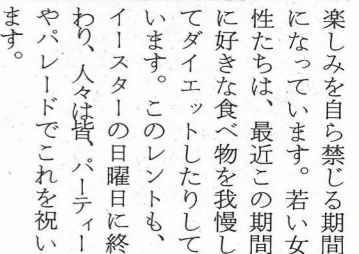 楽しみを自ら禁じる期間
になっています。若い女
性たちは、最近この期間
に好きな食べ物を我慢し
てダイエットしたりして
います。このレントも、
イースターの日曜日に終
わり、人々は皆、パーティー
やパレードでこれを祝い
ます。